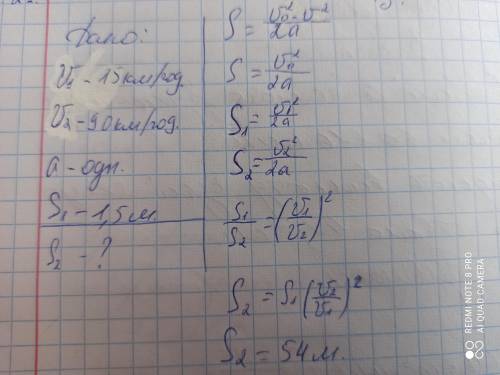 Дано:
V₁ - 15 км/год.
V₂ - 90 км/год.
a - одн.
S₁ - 1,5 м.
S₂ - ?
S = V₀² - V² / 2a
S = V₀² / 2a
S₁ = V₁² / 2a
S₂ = V₂² / 2a
S₁ / S₂ = (V₁ / V₂)²
S₂ = S₁ (V₂ / V₁)²
S₂ = 54 м.
REDMI NOTE 8 PRO
AI QUAD CAMERA